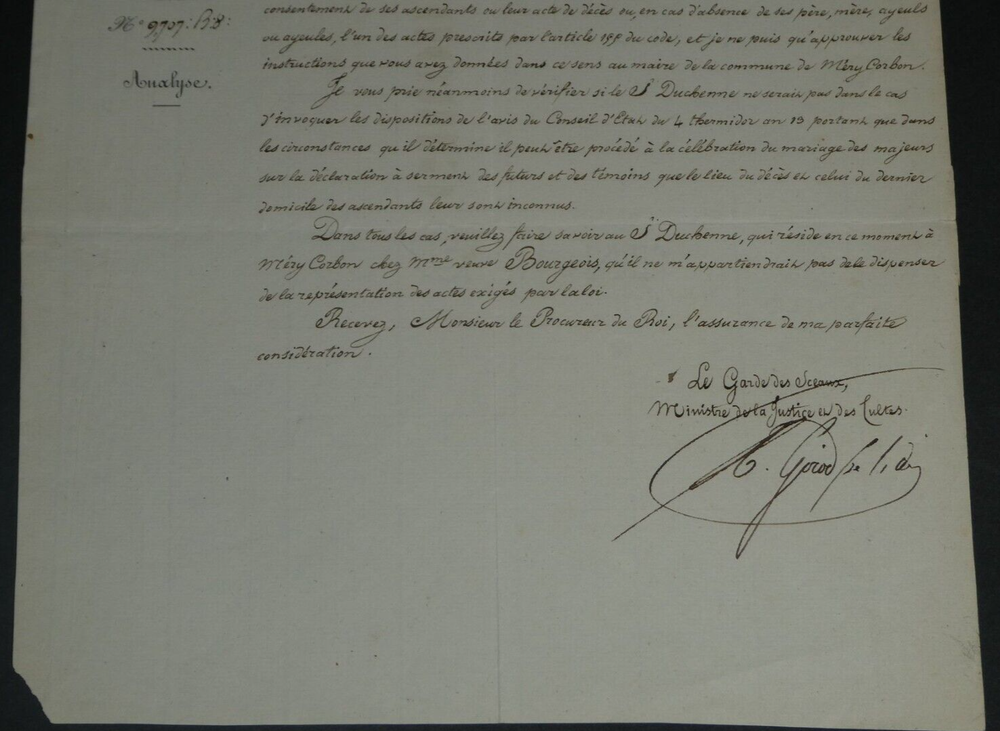 consentement de ses ascendants ou leur acte de décès ou, en cas d'absence de ses père, mère, ayeuls
N° 9,707: B8:
ou ayeules, l'un des actes prescrits par l'article 155 du code, et je ne puis qu'approuver les
instructions que vous avez données dans ce sens au maire de la commune de Méry Corbon.
Analyse.
Je vous prie néanmoins de vérifier si le S. Duchenne ne serait pas dans le cas
d'invoquer les dispositions de l'avis du Conseil d'Etat du 4 thermidor an 13 portant que dans
les circonstances qu'il détermine il peut être procédé à la célébration du mariage des majeurs
sur la déclaration à serment des futurs et des témoins que le lieu du décès et celui du dernier
domicile des ascendants leur sont inconnus.
Dans tous les cas, veuillez faire savoir au S. Duchenne, qui réside en ce moment à
Méry Corbon chez Mme veuve Bourgeois, qu'il ne m'appartiendrait pas de le dispenser
de la représentation des actes exigés par la loi.
Recevez, Monsieur le Procureur du Roi, l'assurance de ma parfaite
considération.
Le Garde des Sceaux,
Ministre de la Justice et des Cultes.
Girod de l'ain